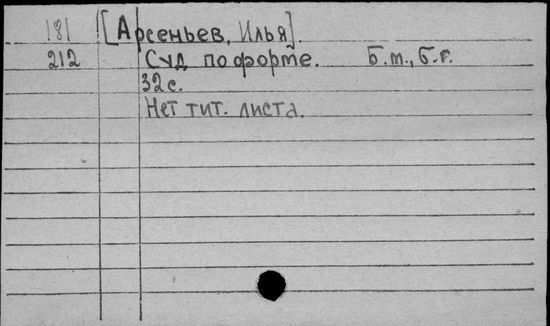 181 [Арсеньев, Илья].
212 Суд по форме. Б.м., Б.г.
32 с.
Нет тит. листа.